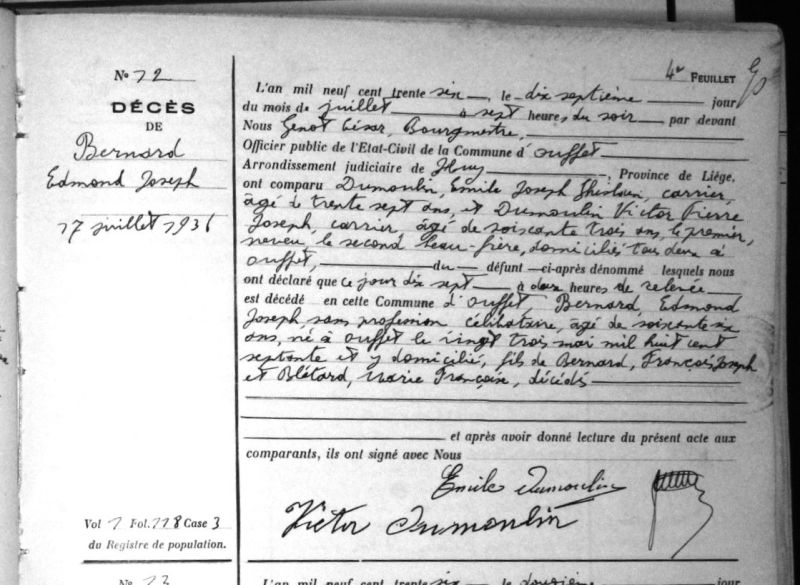 4e FEUILLET
No 12
DÉCÈS
DE
Bernard
Edmond Joseph
17 juillet 1936
L'an mil neuf cent trente six, le dix septième jour
du mois de juillet à sept heures du soir par devant
Nous Genot César, Bourgmestre,
Officier public de l'Etat-Civil de la Commune d'Ouffet
Arrondissement judiciaire de Huy, Province de Liége,
ont comparu Dumoulin, Emile Joseph Ghislain, carrier,
âgé de trente sept ans, et Dumoulin Victor Pierre
Joseph, carrier, âgé de soixante trois ans, le premier,
neveu, le second beau-frère, domiciliés tous deux à
Ouffet, du défunt ci-après dénommé lesquels nous
ont déclaré que ce jour dix sept à deux heures de relevée
est décédé en cette Commune d'Ouffet Bernard, Edmond
Joseph, sans profession célibataire, âgé de soixante six
ans, né à Ouffet le vingt trois mai mil huit cent
septante et y domicilié, fils de Bernard, François Joseph
et Blétard, Marie Françoise, décédés
et après avoir donné lecture du présent acte aux
comparants, ils ont signé avec Nous
Emile Dumoulin
Victor Dumoulin
Vol 1 Fol. 118 Case 3
du Registre de population.
No 13
L'an mil neuf cent trente six, le douzième jour